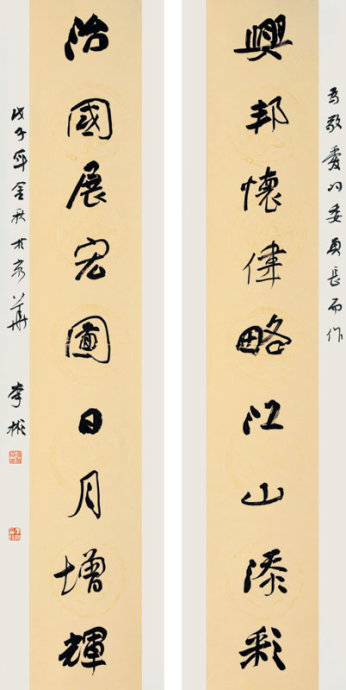 为敬爱的委员长而作
興邦懷偉略江山添彩
治國展宏圖日月增輝
戊子年金秋于京華
李彬